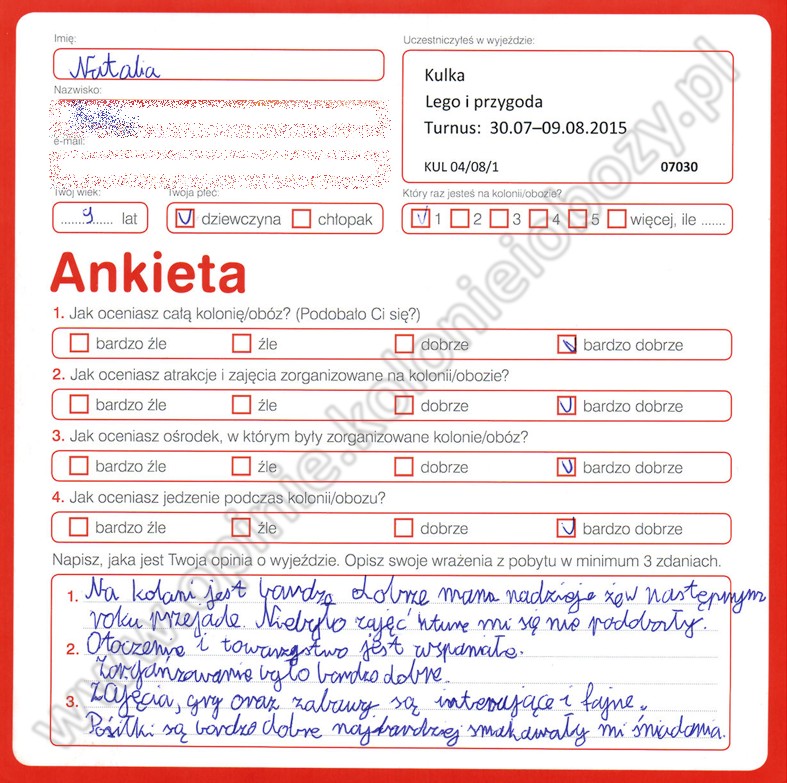 Imię:
Uczestniczyłeś w wyjeździe:
Natalia
Kulka
Lego i przygoda
Turnus: 30.07–09.08.2015
KUL 04/08/1 07030
Nazwisko:
e-mail:
Twój wiek:
Twoja płeć:
Który raz jesteś na kolonii/obozie?
.......9....... lat
V dziewczyna chłopak
V 1 2 3 4 5 więcej, ile .......
Ankieta
1. Jak oceniasz całą kolonię/obóz? (Podobało Ci się?)
bardzo źle źle dobrze V bardzo dobrze
2. Jak oceniasz atrakcje i zajęcia zorganizowane na kolonii/obozie?
bardzo źle źle dobrze V bardzo dobrze
3. Jak oceniasz ośrodek, w którym były zorganizowane kolonie/obóz?
bardzo źle źle dobrze V bardzo dobrze
4. Jak oceniasz jedzenie podczas kolonii/obozu?
bardzo źle źle dobrze V bardzo dobrze
Napisz, jaka jest Twoja opinia o wyjeździe. Opisz swoje wrażenia z pobytu w minimum 3 zdaniach.
1. Na kolani jest bardzo dobrze mam nadzieje żew następnym
roku przejade. Niebyło zajęć mi się nie poddobały.
2. Otoczenie i towarzystwo jest wspaniałe.
Zorgańzowanie było bardzo dobre.
3. Zajęcia, gry oraz zabawy są interujące i fajne.
Posiłki są bardzo dobre najbardziej smakowały mi śniadania.
www.opinie.kolonieiobozy.pl